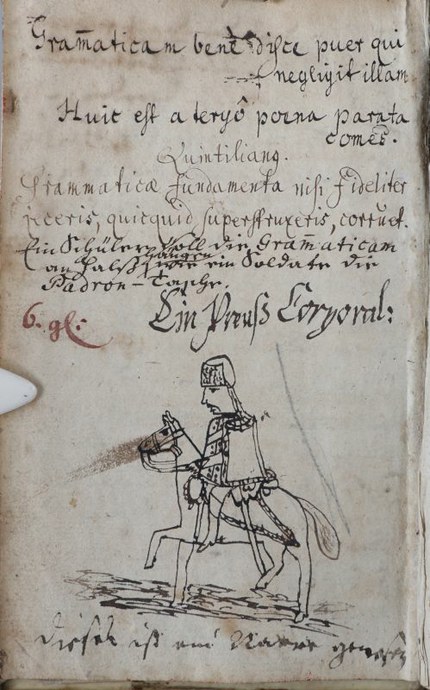 Gram̄aticam bene disce puer qui
negligit illam
Huic est a tergô poena parata
comes.
Quintilianq.
Grammaticæ fundamenta nisi fideliter
jeceris, quicquid superstruxeris, corruet.
Ein Schüler soll die Gram̄aticam
an Halß hangen wie ein Soldate die
Padron-Tasche.
6. gl:
Ein Preuß Corporal:
dieser ist ein Narr gewesen